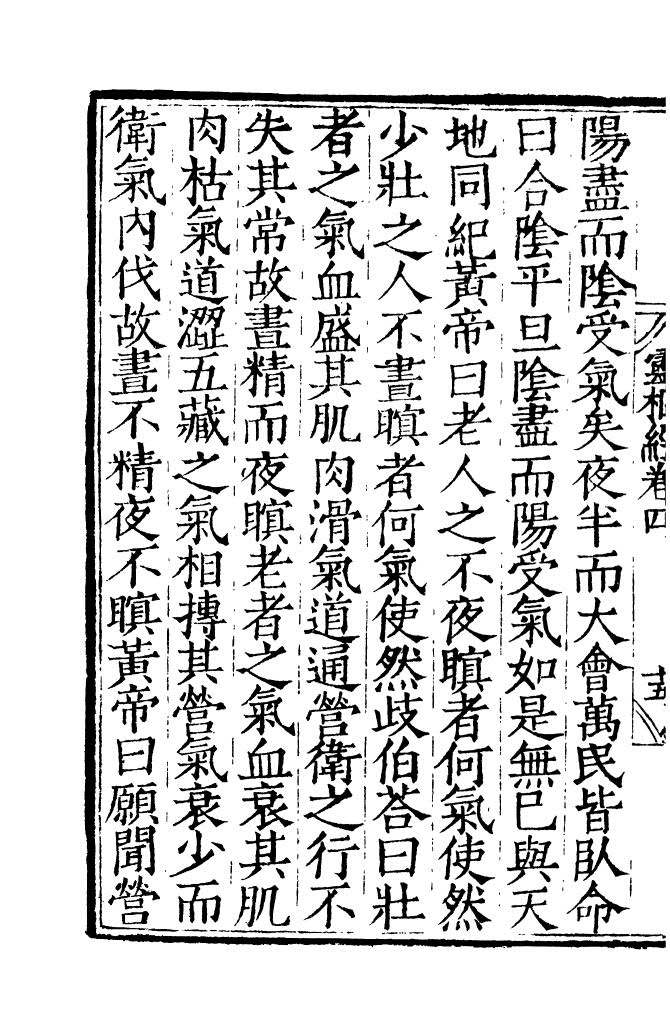 陽盡而陰受氣矣夜半而大會萬民皆臥命
曰合陰平旦陰盡而陽受氣如是無已與天
地同紀黃帝曰老人之不夜瞑者何氣使然
少壯之人不晝瞑者何氣使然歧伯荅曰壯
者之氣血盛其肌肉滑氣道通營衛之行不
失其常故晝精而夜瞑老者之氣血衰其肌
肉枯氣道澀五藏之氣相搏其營氣衰少而
衛氣內伐故晝不精夜不瞑黃帝曰願聞營
靈樞經卷四
十五